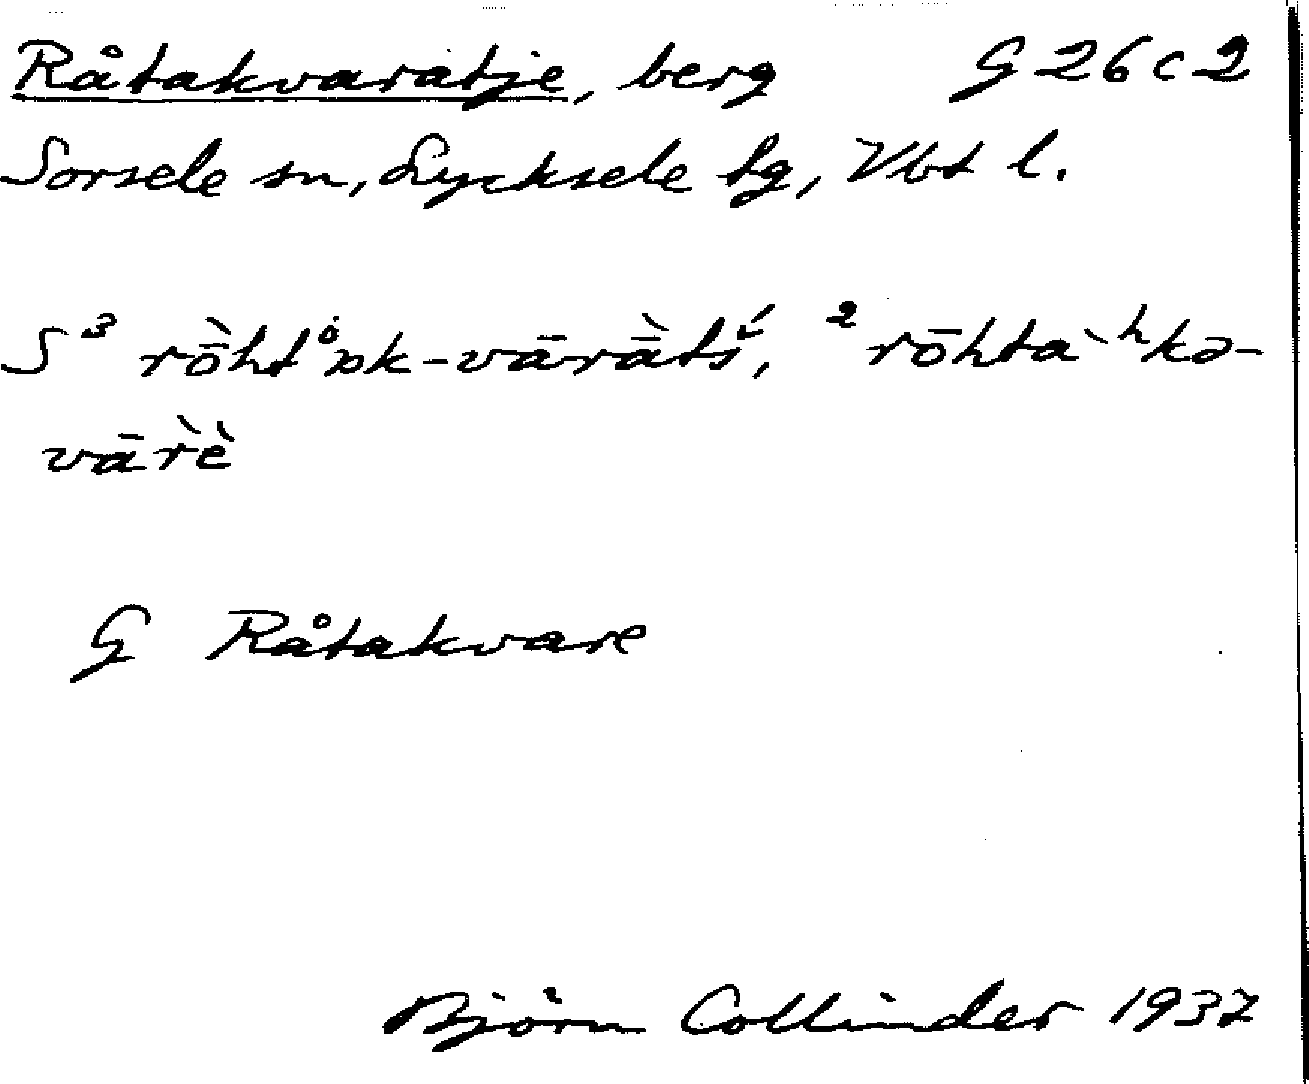 Råtakvaratje, berg G 26 c 2
Sorsele sn, Lycksele lg, Vbt l.
S ³ rṑht°ɒk-vārā̀tś, ² rōhtaˋʰkə-
vārˋè
G Råtakvare
Björn Collinder 1937